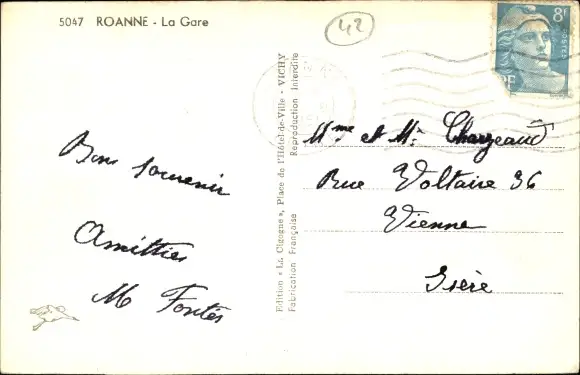 5047 ROANNE - La Gare
42
8F
POSTES
RF
Bon Souvenir
Amitiés
M Fontés
Edition « La Cigogne », Place de l'Hôtel-de-Ville - VICHY
Fabrication Française Reproduction Interdite
Mme et Mr
Rue Voltaire 36
Vienne
Isère